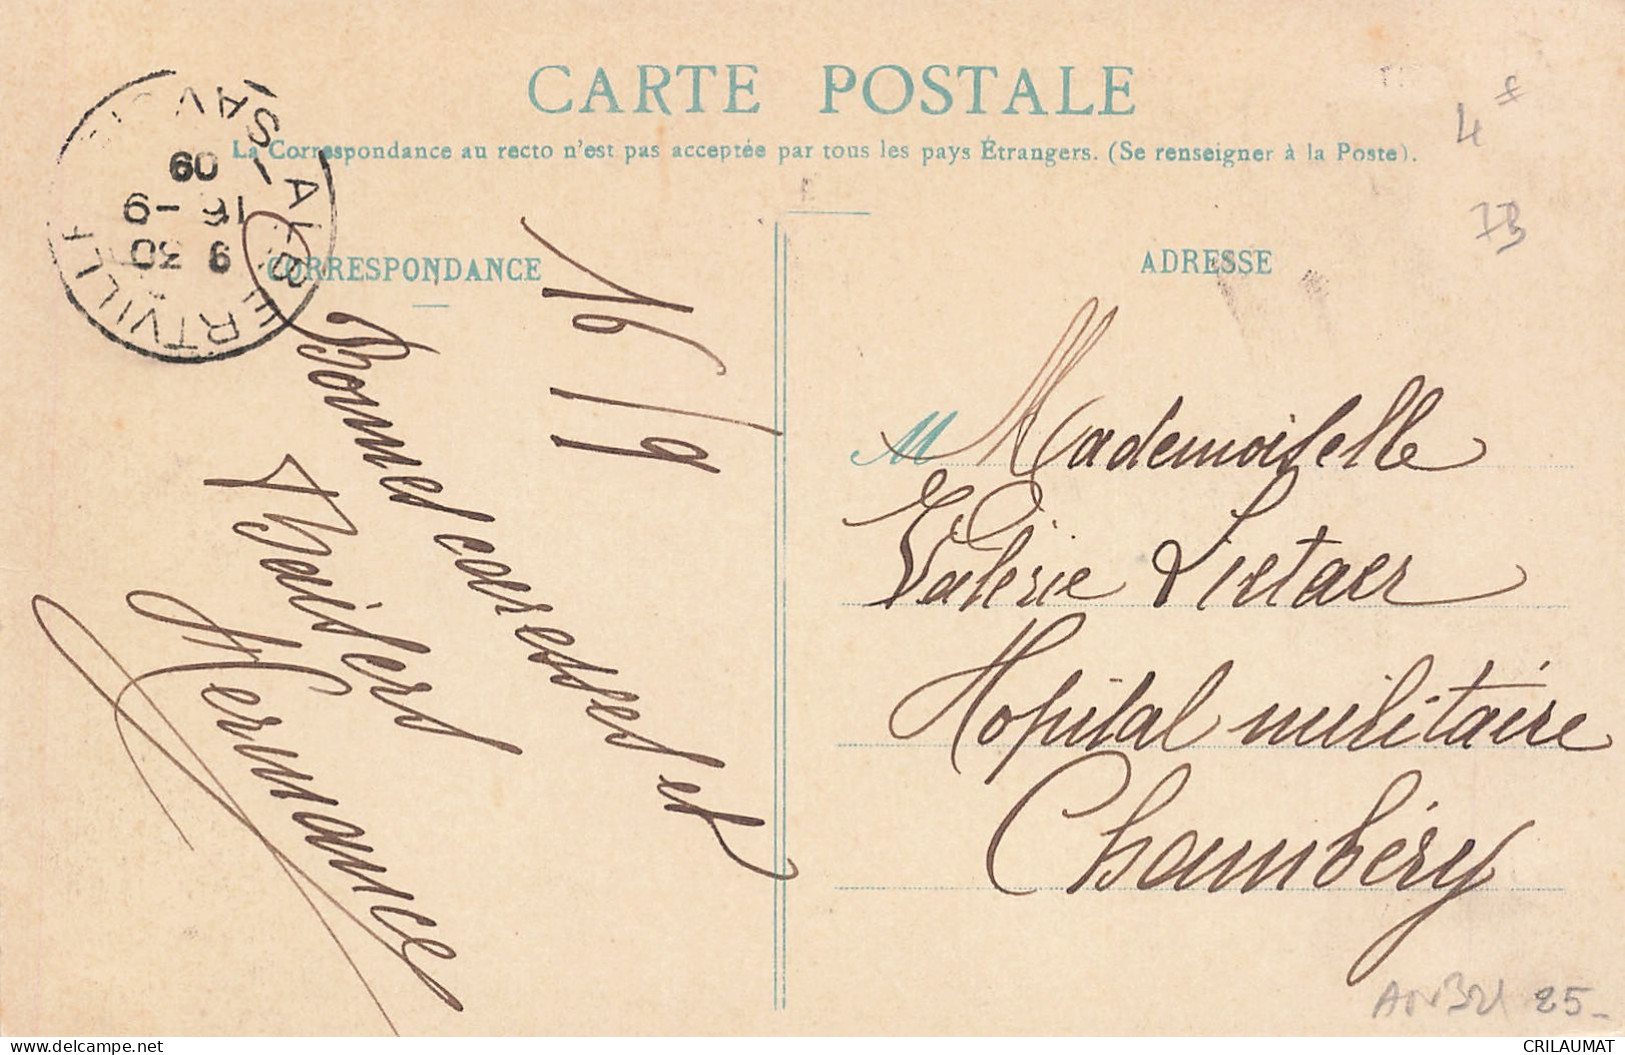 CARTE POSTALE
La Correspondance au recto n'est pas acceptée par tous les pays Étrangers. (Se renseigner à la Poste).
ALBERTVILLE
9 30
16 -9
09
CORRESPONDANCE
16/9
Bonnes caresses et
Baisers
Hermance
ADRESSE
M Mademoiselle
Valérie Lietaer
Hopital militaire
Chambéry
4
73
25-
delcampe.net
CRILAUMAT